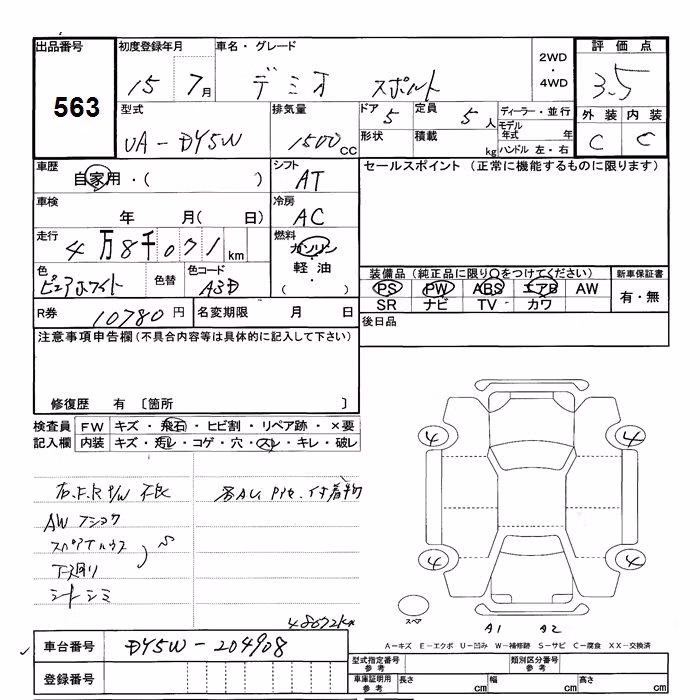 出品番号 初度登録年月 車名・グレード 2WD・4WD 評価点
563 15 7月 デミオ スポルト 3.5
型式 排気量 ドア 5 定員 5人 ディーラー・並行 外装 内装
UA-DY5W 1500cc 形状 積載 kg モデル年式 年 C C
ハンドル 左・右
車歴 シフト セールスポイント (正常に機能するものに限ります)
自家用・( ) AT
車検 冷房
年 月( 日) AC
走行 燃料
4万8千071km ガソリン・軽油・( )
色 色替 色コード 装備品 (純正品に限り○をつけてください) 新車保証書
ピュアホワイト A3D PS PW ABS エアB AW 有・無
SR ナビ TV・カワ
R券 10780円 名変期限 月 日 後日品
注意事項申告欄(不具合内容等は具体的に記入して下さい)
修復歴 有 〔箇所 〕
検査員 FW キズ・飛石・ヒビ割・リペア跡・×要
記入欄 内装 キズ・汚レ・コゲ・穴・スレ・キレ・破レ
4 4
右.F.R P/W 不良
AWフショク
4 4
下廻り S
シートシミ
スペア
48072km A1 A2
A-キズ E-エクボ U-凹み W-補修跡 S-サビ C-腐食 XX-交換済
車台番号 DY5W-204908 型式指定番号 参考 類別区分番号 参考
登録番号 車庫証明用 参考 長さ cm 幅 cm 高さ cm